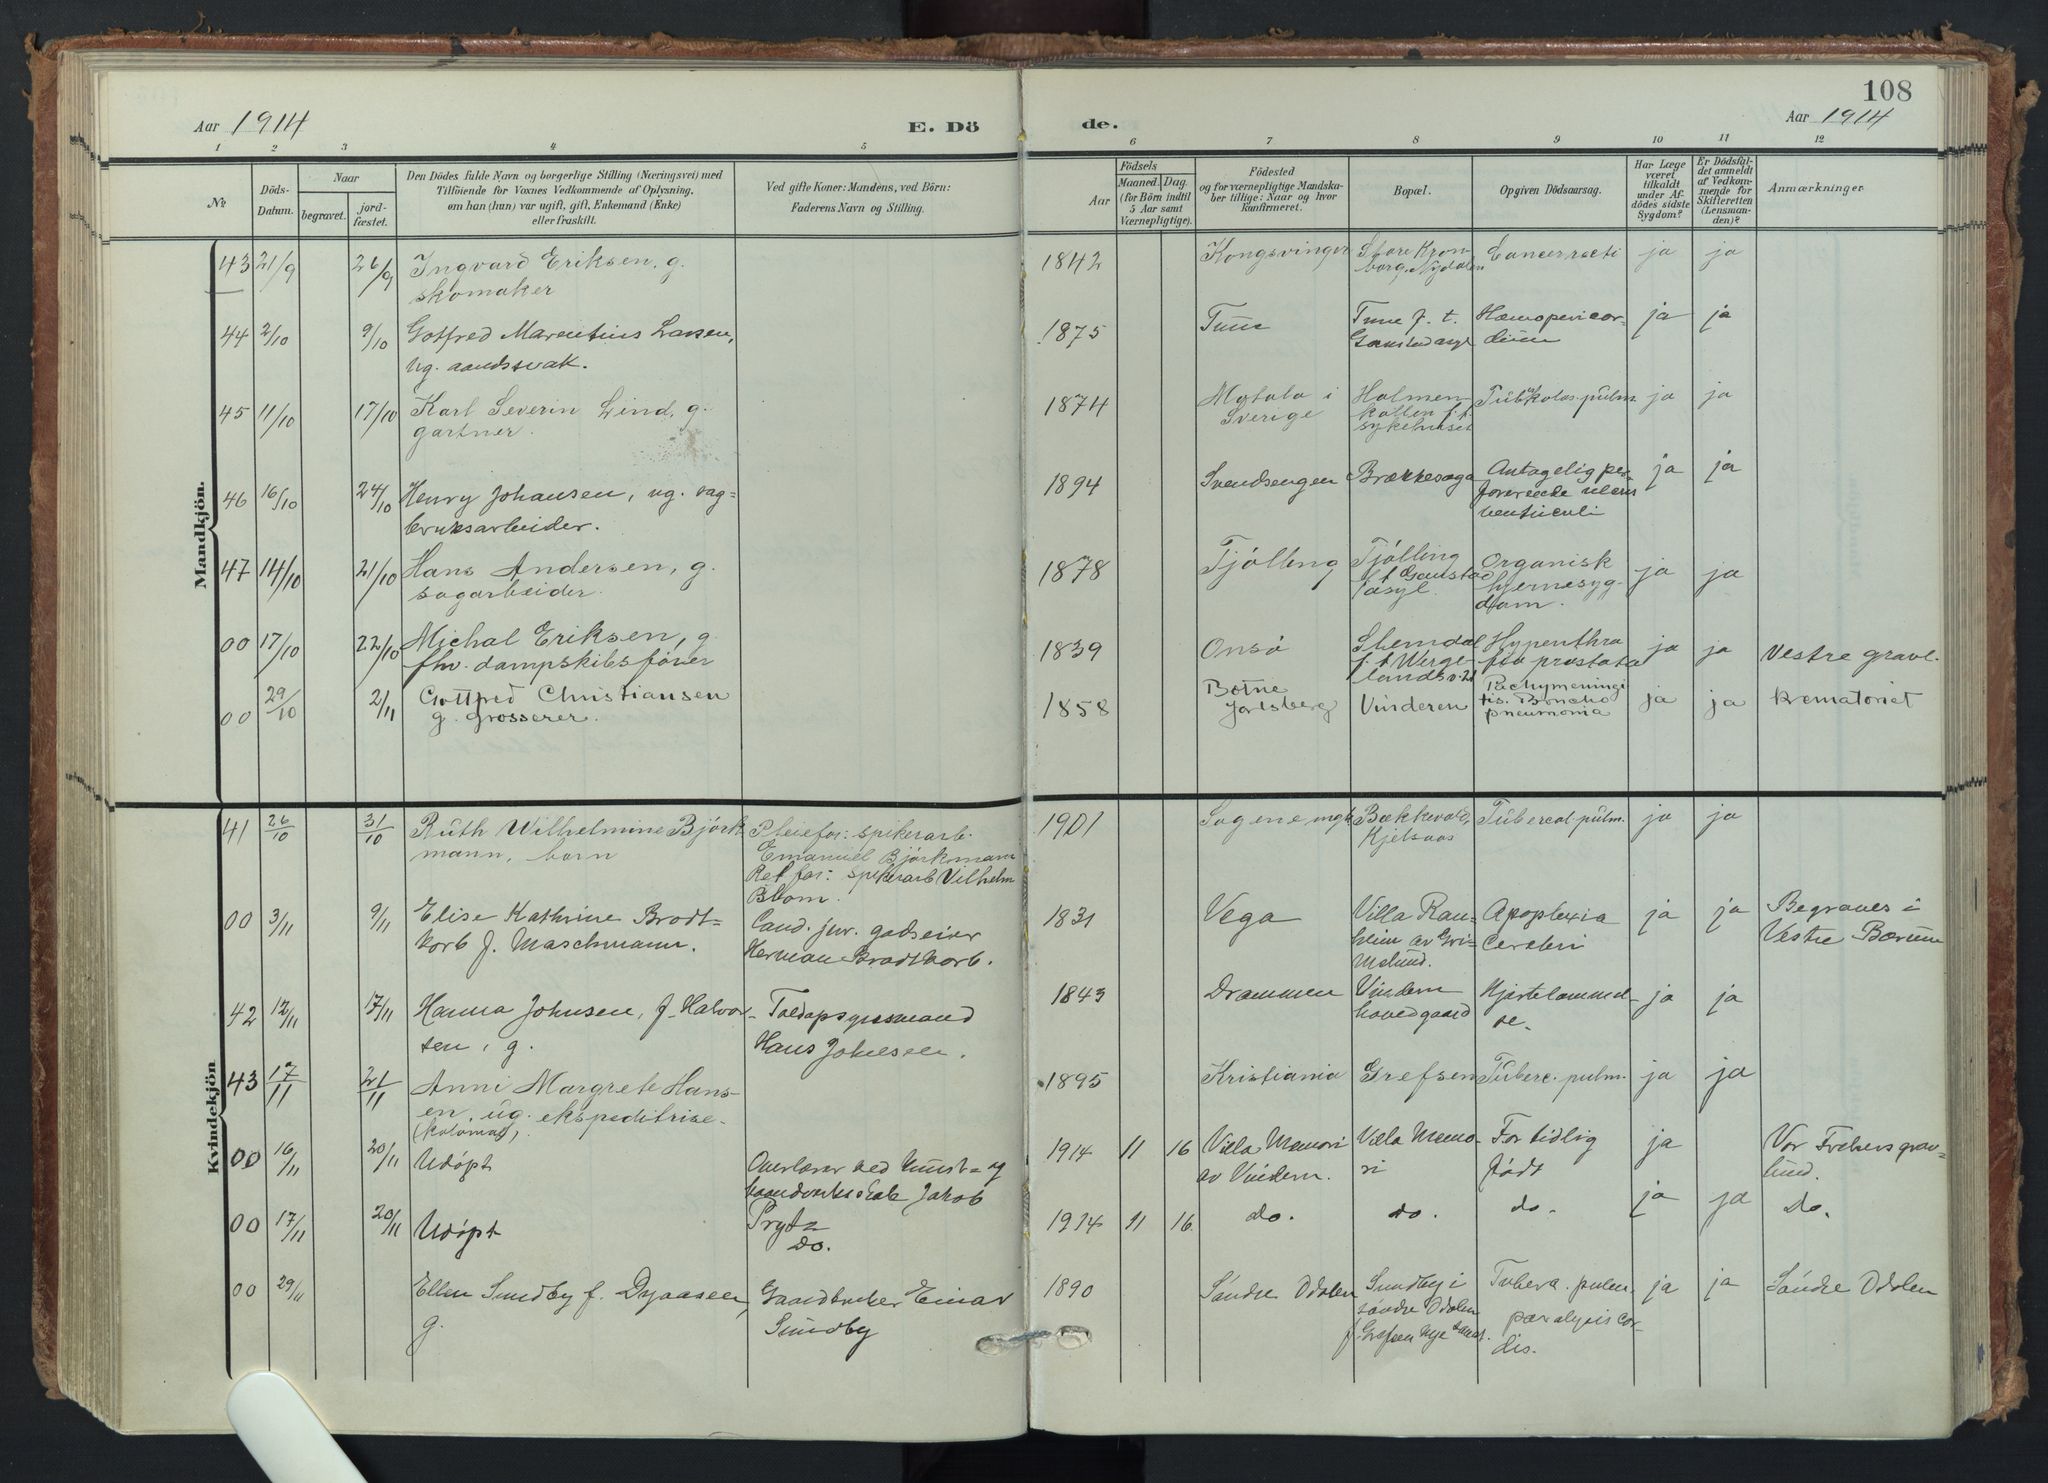 108
Aar 1914
E. Dö
de.
Aar 1914
1 2 3 4 5 6 7 8 9 10 11 12
№
Döds-
Datum.
Naar
begravet.
jord-
fæstet.
Den Dödes fulde Navn og borgerlige Stilling (Næringsvei) med
Tilföiende for Voxnes Vedkommende af Oplysning,
om han (hun) var ugift, gift, Enkemand (Enke)
eller fraskilt.
Ved gifte Koner: Mandens, ved Börn:
Faderens Navn og Stilling.
Födsels
Aar
Maaned. Dag.
(for Börn indtil
5 Aar samt
Værnepligtige).
Födested
og for værnepligtige Mandska-
ber tillige: Naar og hvor
konfirmeret.
Bopæl.
Opgiven Dödsaarsag.
Har Læge
været
tilkaldt
under Af-
dödes sidste
Sygdom?
Er Dödsfal-
det anmeldt
af Vedkom-
mende for
Skifteretten
(Lensman-
den)?
Anmærkninger
Mandkjön.
43 21/9 26/9 Ingvard Eriksen, g.
skomaker
1842 Kongsvinger Store Kron-
borg, Nydalen
Cancer recti ja ja
44 2/10 9/10 Gotfred Marentius Larsen,
ug. aandssvak.
1875 Tune Tune f. t.
Gaustad asyl
Hæmopericar-
dium
ja ja
45 11/10 17/10 Karl Severin Lind, g.
gartner.
1874 Motala i
Sverige
Holmen-
kollen f. t.
sykehuset
Tuberkulos. pulm. ja ja
46 16/10 24/10 Henry Johansen, ug. sag-
bruksarbeider.
1894 Svendsengen Brækkesaga Antagelig per-
forerende ulcus
ventriculi
ja ja
47 14/10 21/10 Hans Andersen, g.
sagarbeider.
1878 Tjølling Tjølling
f t Gaustad
asyl.
Organisk
hjernesyg-
dom.
ja ja
00 17/10 22/10 Michal Eriksen, g.
fhv. dampskibsfører
1839 Onsø Slemdal
f. t Werge-
landsv. 21
Hypenthra
fia prostata
ja ja Vestre gravl.
00 29/10 2/11 Gottfred Christiansen
g. grosserer.
1858 Botne
Jarlsberg
Vinderen Pachymeningi
tis. Boncho
pneumonia
ja ja krematoriet
Kvindekjön
41 26/10 31/10 Ruth Wilhelmine Bjørk
mann, barn
Pleiefar: spikerarb.
Emanuel Bjørkmann
Ret far: spikerarb Vilhelm
Blom.
1901 Sagene mgh Bækkevold,
Kjelsaas
Tubercul. pulm. ja ja
00 3/11 9/11 Elise Kathrine Brodt-
korb f. Maschmann.
Cand. jur. godseier
Herman Brodtkorb.
1831 Vega Villa Ran-
heim av Gri-
melund.
Apoplexia
Cerebri
ja ja Begraves i
Vestre Bærum
42 12/11 17/11 Hanna Johnsen, f. Halvor-
sen, g.
Toldopsynsmand
Hans Johnsen.
1843 Drammen Vindern
hovedgaard
Hjertelammel-
se.
ja ja
43 17/11 21/11 Anni Margrete Hans-
en, ug. ekspeditrise.
1895 Kristiania Grefsen Tuberc. pulm. ja ja
00 16/11 20/11 Udøpt
Overlærer ved Kunst- og
haandverksskole Jakob
Prytz
1914 11 16 Villa Memori
av Vindern.
Villa Memo-
ri
For tidlig
født
ja Vor Frelsers grav-
lund.
00 17/11 20/11 Udøpt Do.
1914 11 16. do. do. do. ja ja Do.
00 29/11 Ellen Sundby f. Dysaasen,
g.
Gaardbruker Einar
Sundby
1890 Søndre Odalen Sundby i
søndre Odalen
f. Grefsen nye sanat.
Tuberc. pulm.
paralysis cor-
dis.
ja ja Søndre Odalen